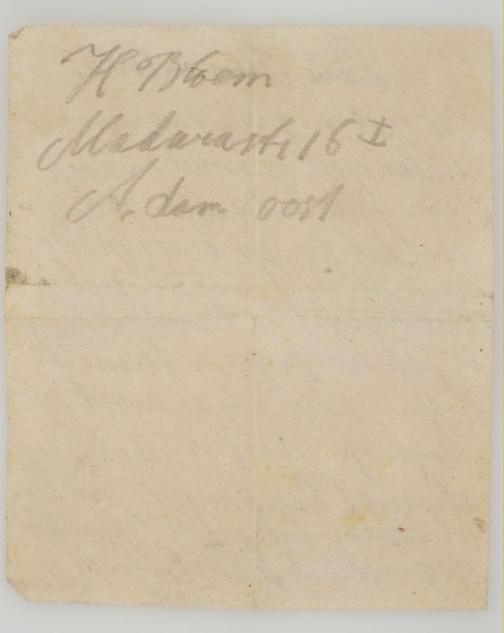 H Bloem
Madurastr, 16 I
A. dam oost